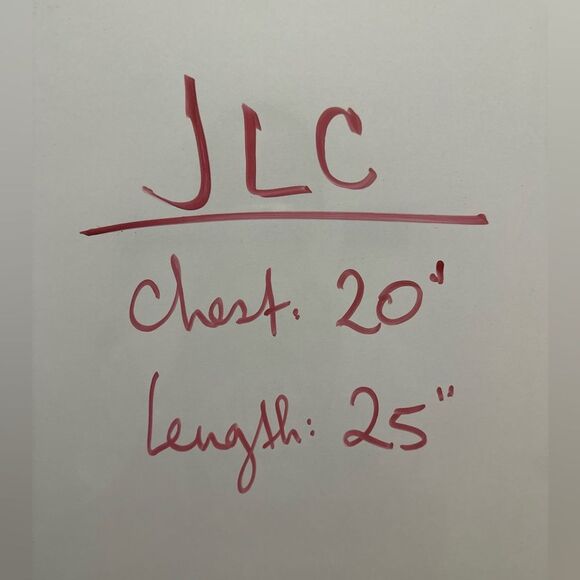 JLC
Chest: 20"
Length: 25"